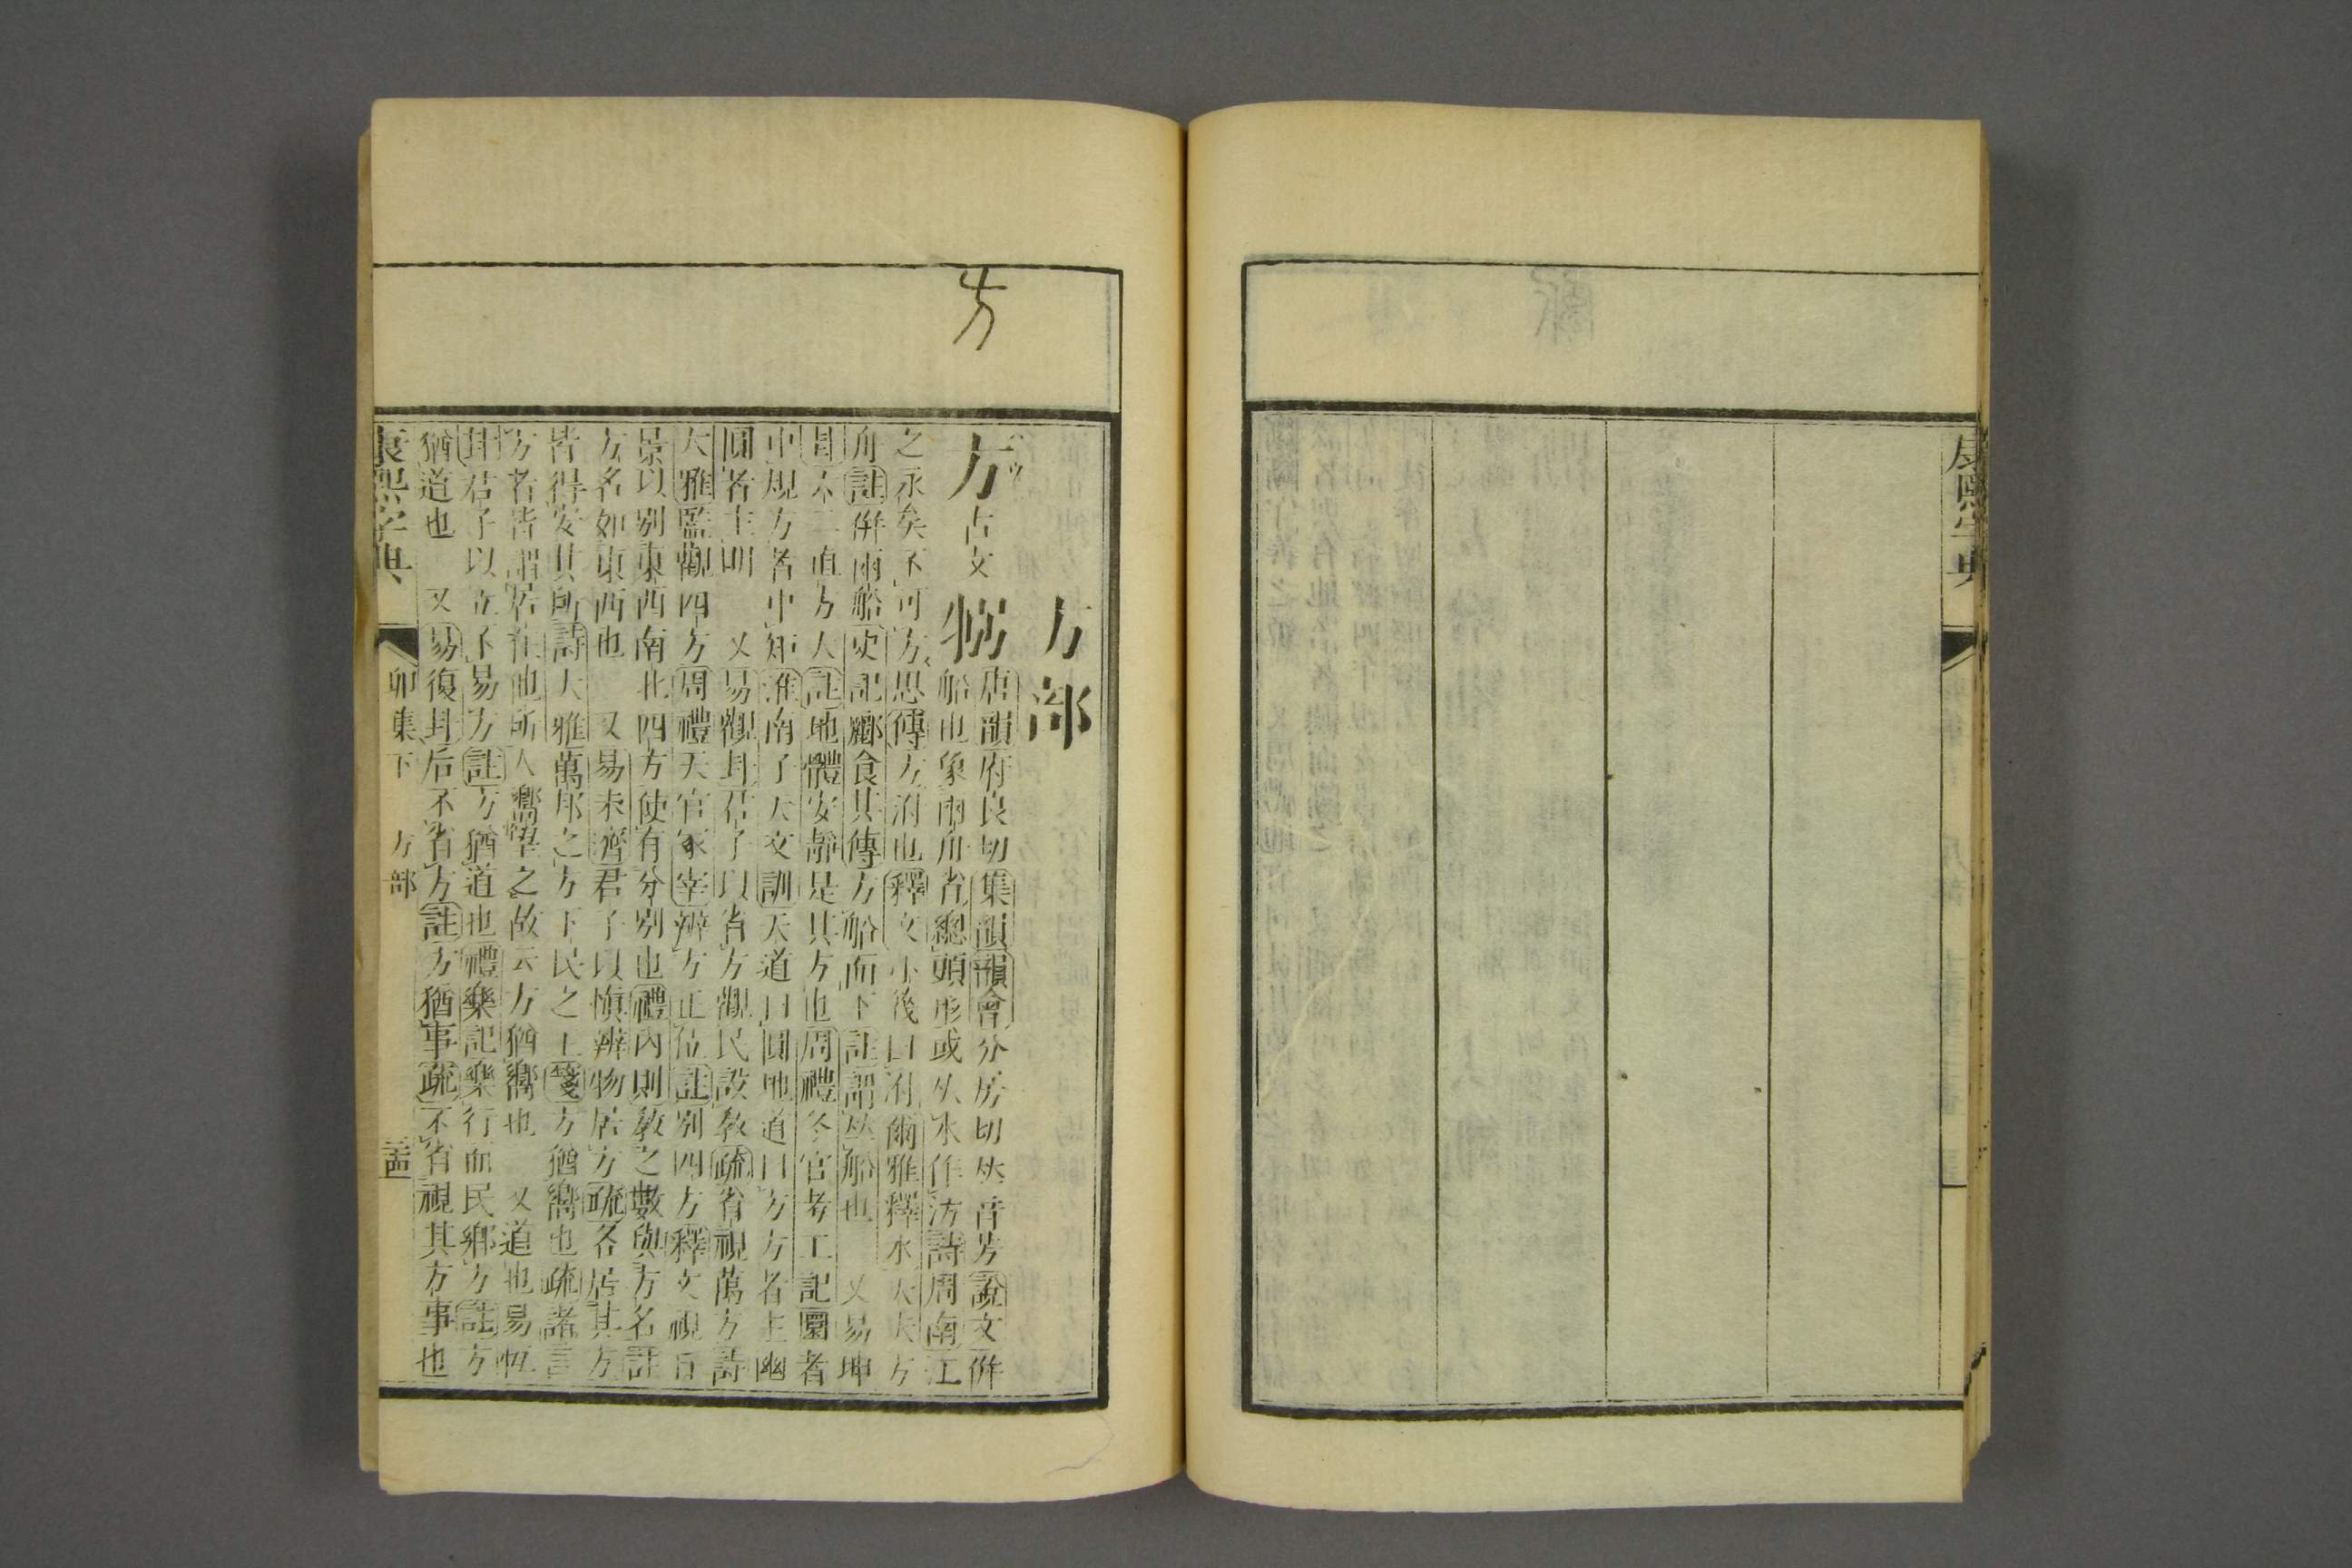 康熙字典
方
方部
方古文㧍
唐韻府良切集韻韻會分房切𠀤音芳說文倂
船也象兩舟省總頭形或从水作汸詩周南江
之永矣不可方思傳方泭也釋文小筏曰泭爾雅釋水大夫方
舟註倂兩船史記酈食其傳方船而下註謂𠀤船也　又易坤
卦不二直方大註地體安靜是其方也周禮冬官考工記圜者
中規方者中矩淮南子天文訓天道曰圓地道曰方方者主幽
圓者主明　又易觀卦君子以省方觀民設敎疏省視萬方詩
大雅監觀四方周禮天官冢宰辨方正位註別四方釋文視日
景以別東西南北四方使有分別也禮內則敎之數與方名註
方名如東西也　又易未濟君子以愼辨物居方疏各居其方
皆得安其所詩大雅萬邦之方下民之王箋方猶嚮也疏諸言
方者皆謂居在他所人嚮望之故云方猶嚮也　又道也易恆
卦君子以立不易方註方猶道也禮樂記樂行而民鄕方註方
猶道也　又易復卦后不省方註方猶事疏不省視其方事也
康熙字典　卯集下　方部